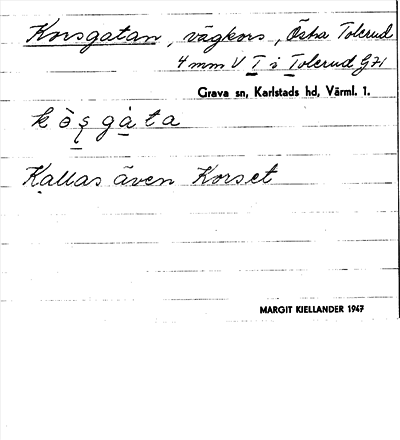 Korsgatan, vägkors, Östra Tolerud
4 mm V T i Tolerud G71
Grava sn, Karlstads hd, Värml. 1.
kò̀ʂgàta
Kallas även Korset
MARGIT KIELLANDER 1947